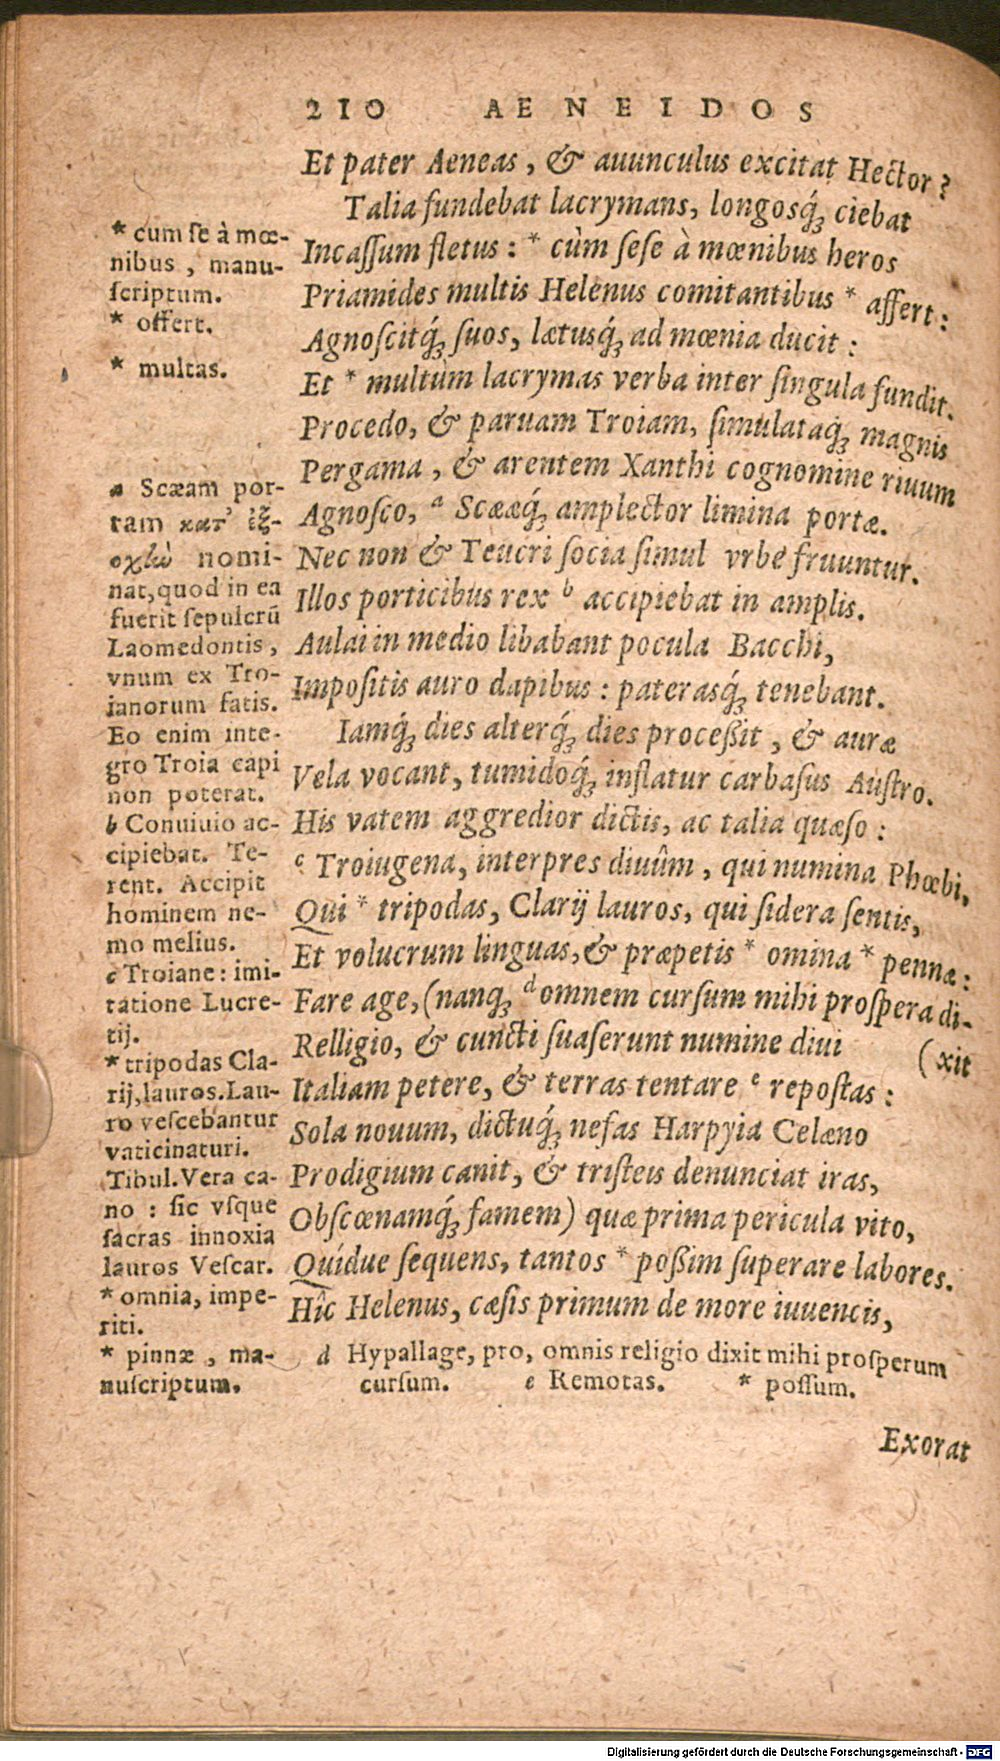 210 AENEIDOS
Et pater Aeneas, & auunculus excitat Hector?
Talia fundebat lacrymans, longosq́; ciebat
Incaſſum fletus: * cùm ſeſe à mœnibus heros
Priamides multis Helenus comitantibus * affert:
Agnoſcitq́; ſuos, lætusq́; ad mœnia ducit:
Et * multùm lacrymas verba inter ſingula fundit.
Procedo, & paruam Troiam, ſimulataq́; magnis
Pergama, & arentem Xanthi cognomine riuum
Agnoſco, a Scææq́; amplector limina portæ.
Nec non & Teucri ſocia ſimul vrbe fruuntur.
Illos porticibus rex b accipiebat in amplis.
Aulai in medio libabant pocula Bacchi,
Impoſitis auro dapibus: paterasq́; tenebant.
Iamq́; dies alterq́; dies proceßit, & auræ
Vela vocant, tumidoq́; inflatur carbaſus Auſtro.
His vatem aggredior dictis, ac talia quæſo:
c Troiugena, interpres diuûm, qui numina Phœbi,
Qui * tripodas, Clarij lauros, qui ſidera ſentis,
Et volucrum linguas, & præpetis * omina * pennæ:
Fare age, (nanq́; d omnem curſum mihi proſpera di-
Relligio, & cuncti ſuaſerunt numine diui (xit
Italiam petere, & terras tentare e repoſtas:
Sola nouum, dictuq́; nefas Harpyia Celæno
Prodigium canit, & triſteis denunciat iras,
Obſcœnamq́; famem) quæ prima pericula vito,
Quídue ſequens, tantos * poßim ſuperare labores.
Hîc Helenus, cæſis primum de more iuuencis,
* cum ſe à mœ-
nibus, manu-
ſcriptum.
* offert.
* multas.
a Scæam por-
tam κατ' ἐξ-
οχὼ nomi-
nat, quod in ea
fuerit ſepulcrũ
Laomedontis,
vnum ex Tro-
ianorum fatis.
Eo enim inte-
gro Troia capi
non poterat.
b Conuiuio ac-
cipiebat. Te-
rent. Accipit
hominem ne-
mo melius.
c Troiane: imi-
tatione Lucre-
tij.
* tripodas Cla-
rij, lauros. Lau-
ro veſcebantur
vaticinaturi.
Tibul. Vera ca-
no: ſic vſque
ſacras innoxia
lauros Veſcar.
* omnia, impe-
riti.
* pinnæ, ma-
nuſcriptum.
d Hypallage, pro, omnis religio dixit mihi proſperum
curſum. e Remotas. * poſſum.
Exorat
Digitalisierung gefördert durch die Deutsche Forschungsgemeinschaft - DFG